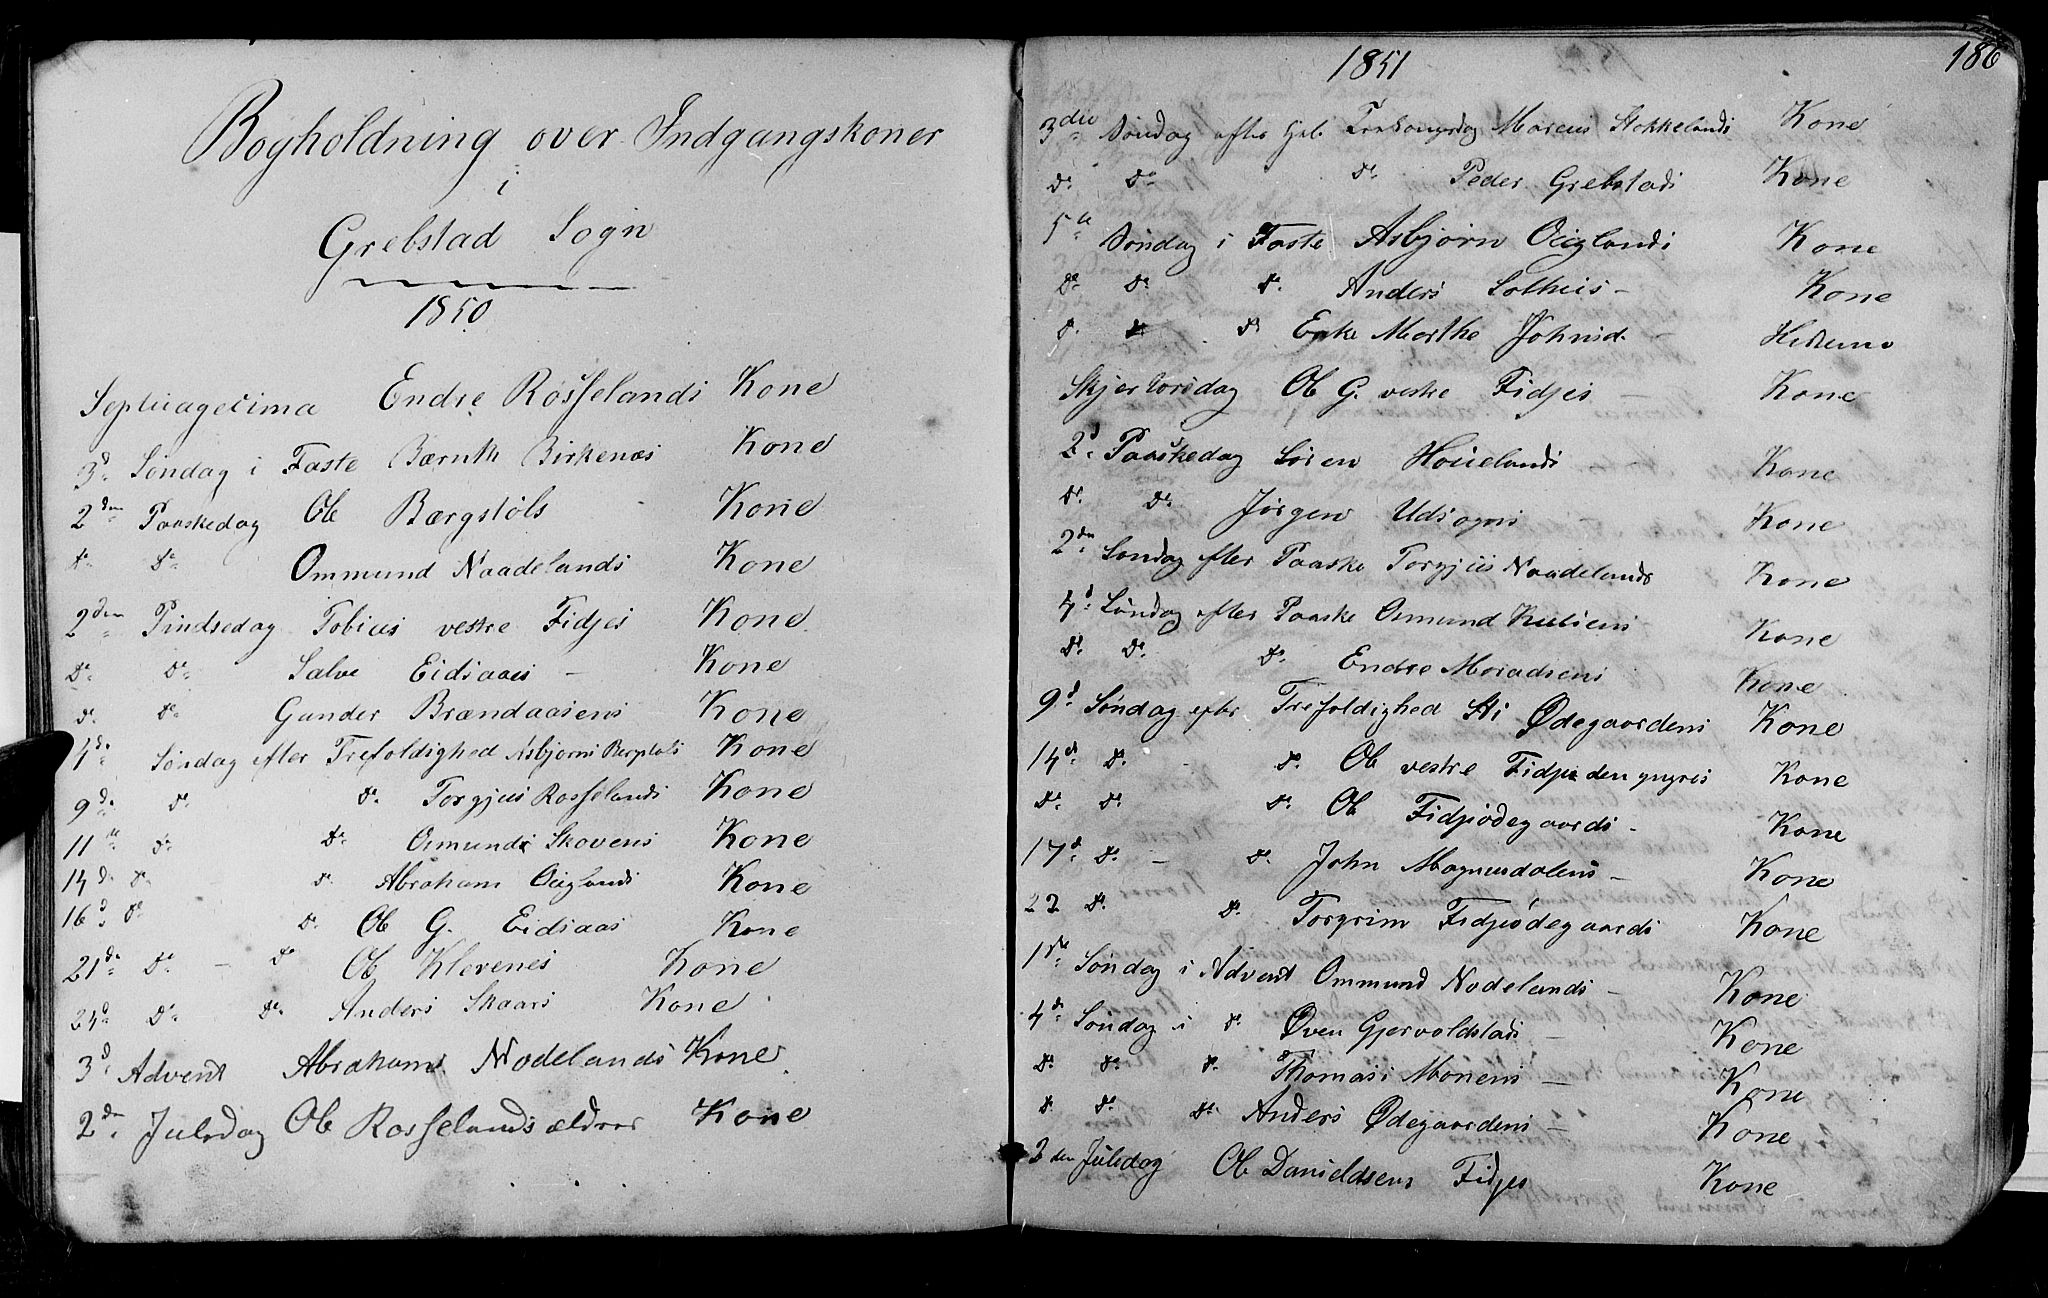 Bogholdning over Indgangskoner
i
Grebstad Sogn
1850
Septuagesima Endre Rosselands Kone
3d. Søndag i Faste Bærnth Birkenæs Kone
2den Paaskedag Ole Bærgstøls Kone
do do Ommund Naadelands Kone
2den Pindsedag Tobias vestre Fidjes Kone
do do Salve Eidsaaes - Kone
do do Gunder Brændaasens Kone
4de Søndag efter Trefoldighed Asbjørns Bergstøls Kone
9de do do Torgjus Rosselands Kone
11te do do Osmunds Skovens Kone
14d. do do Abraham Øuglands Kone
16d. do do Ole G. Eidsaas Kone
21de do - do Ole Klevenes Kone
24d do do Anders Skaars Kone
3d. Advent Abrahams Nodelands Kone
2den Juledag Ole Rosselands ældres Kone
1851
186
3die Søndag efter Hel. Trekongersdag Marcus Stokkelands Kone
do do do Peder Grebstads Kone
5te Søndag i Faste Asbjørn Øuglands Kone
do do do Anders Solhuis - Kone
do do do Enke Marthe Johnsd. -
Skjertorsdag Ole G. vestre Fidjes - Kone
2d. Paaskedag Søren Houelands - Kone
do do Jørgen Udsogns - Kone
2den Søndag efter Paaske Torgjus Naadelands Kone
4d. Søndag efter Paaske Osmund Kuliens Kone
do do do Endre Moradsens Kone
9d. Søndag efter Trefoldighed Ødegaardens Kone
14de do - do Ole vestre Fidje den yngres Kone
do do do Ole Fidjeødegaards - Kone
17d. do - do John Magnusdalens - Kone
22 do do Torgrim Fidjeødegaards Kone
1ste Søndag i Advent Ommund Nodelands - Kone
4de Søndag i do Øven Gjervoldstads - Kone
do do do Thomas i Monens - Kone
do do do Anders Ødegaardens - Kone
2den Juledag Ole Danieldsens Fidjes Kone